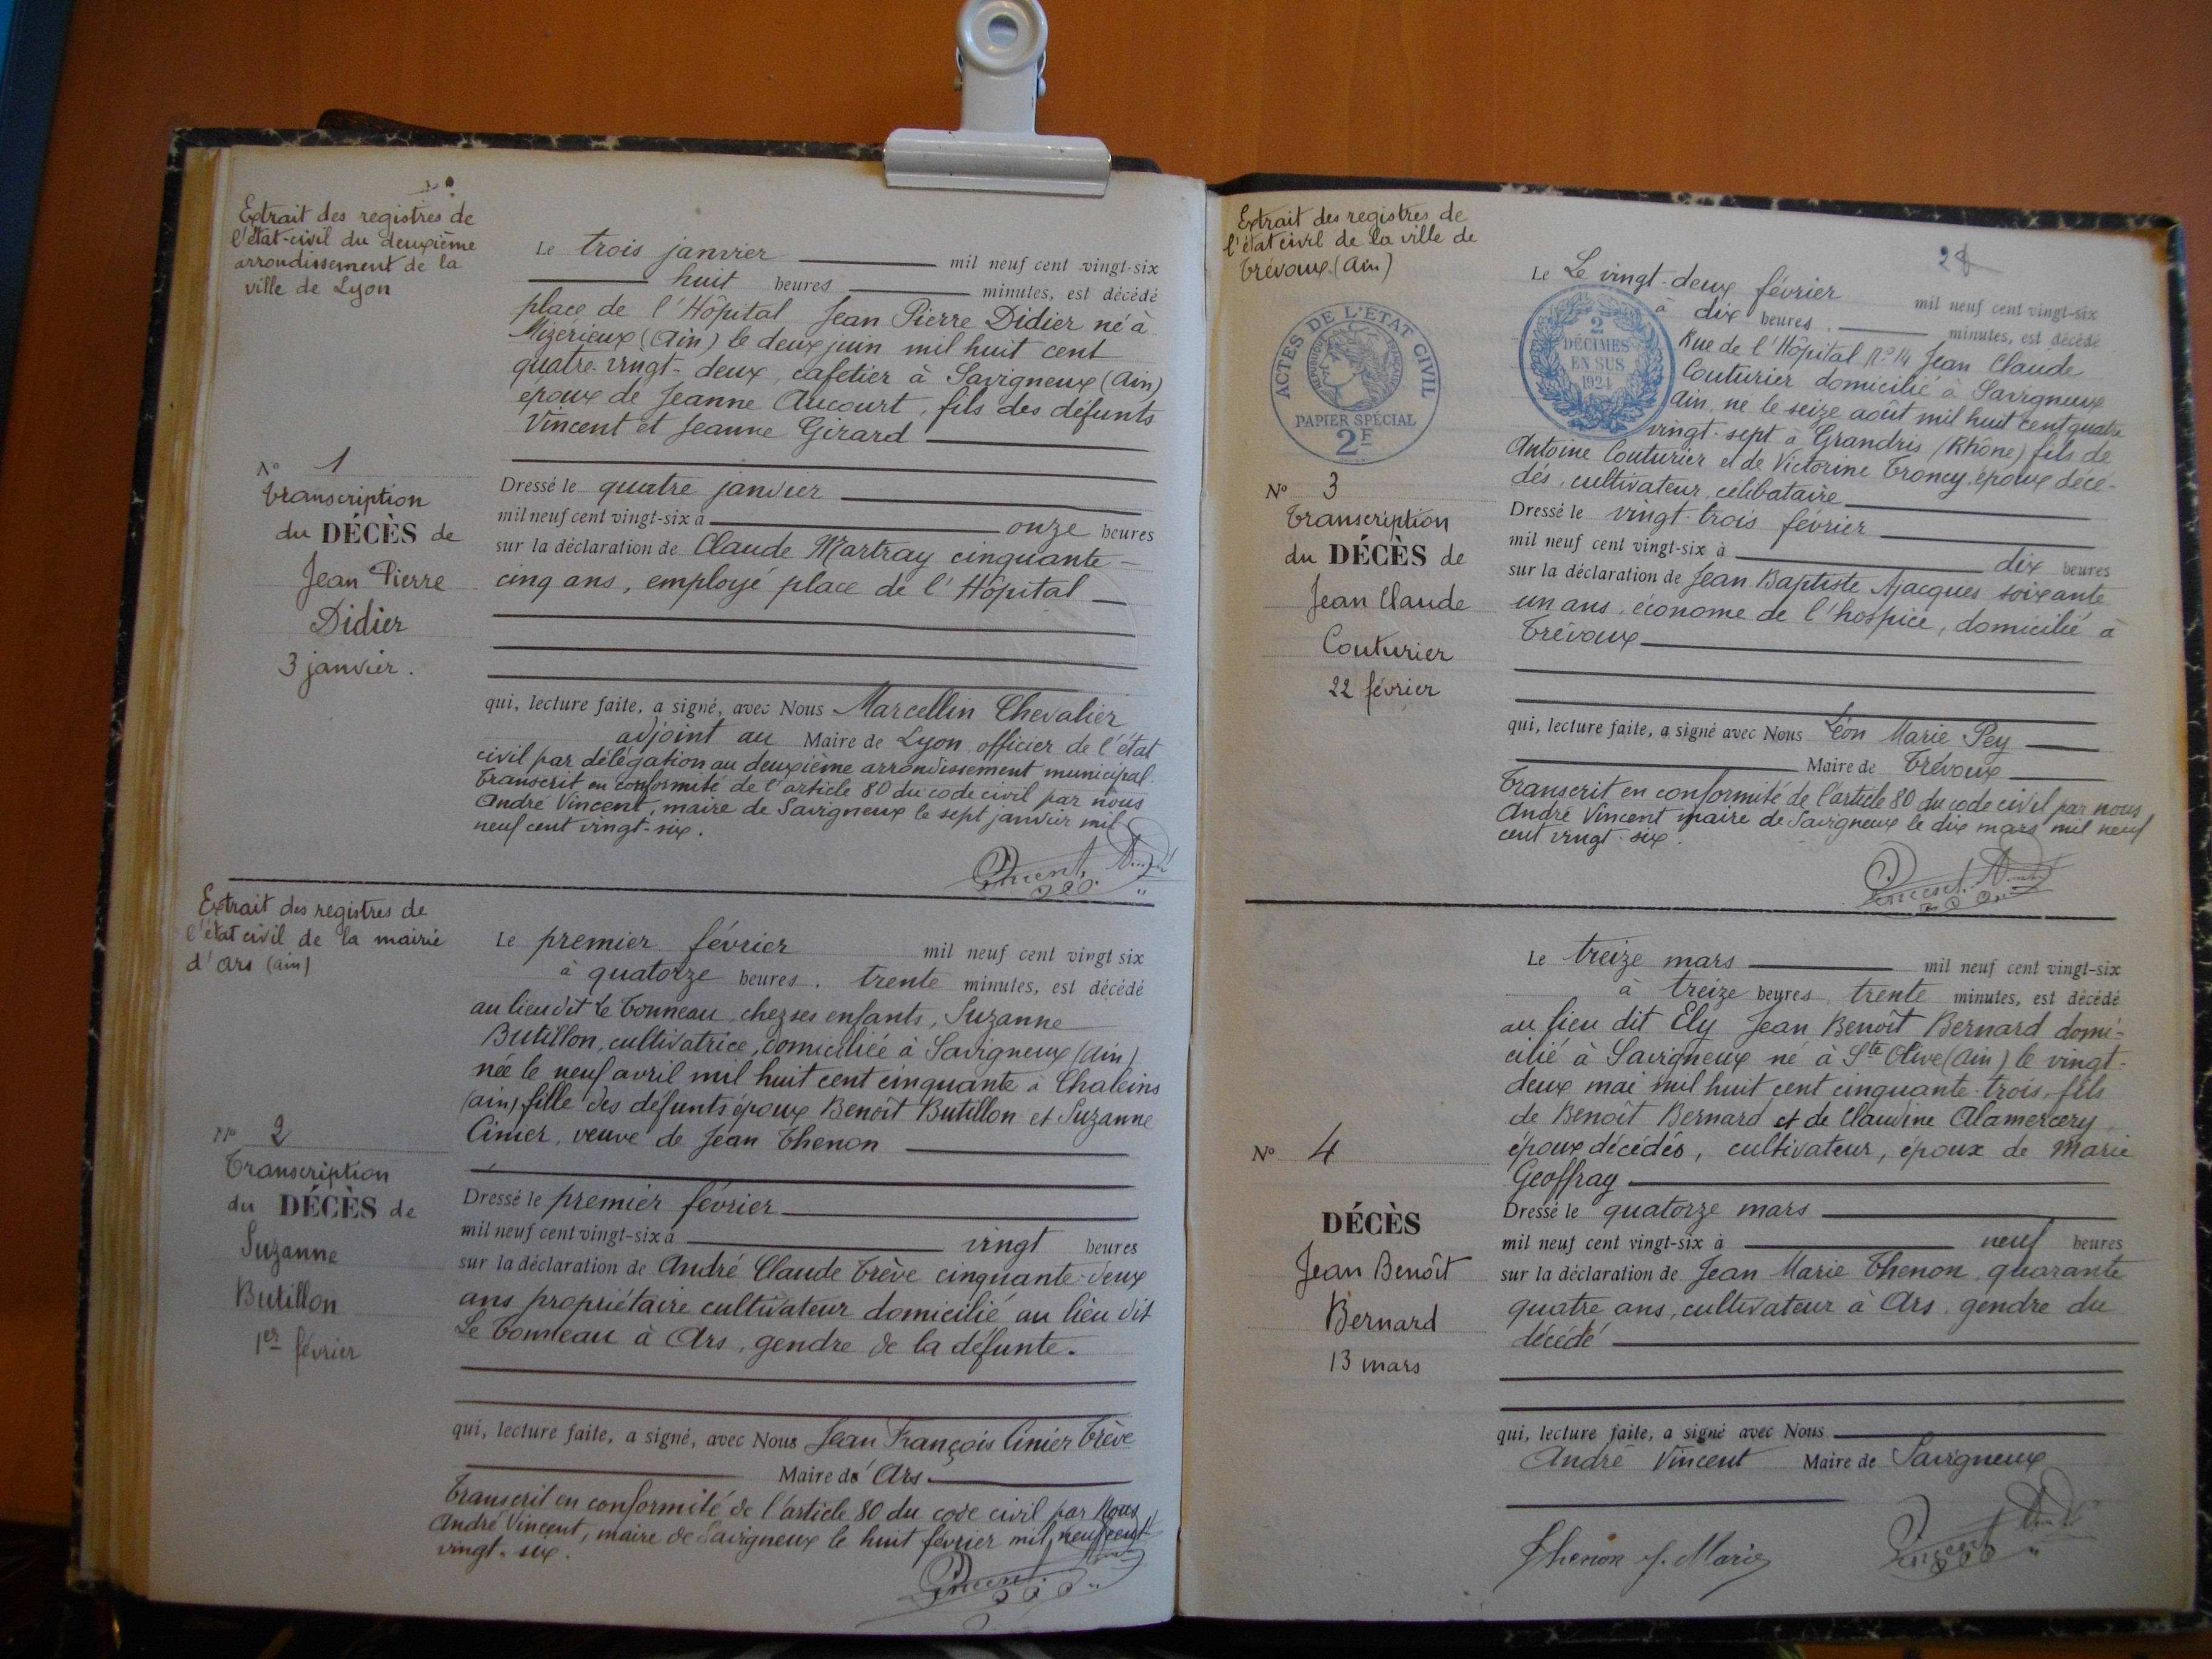 Extrait des registres de
l'état-civil du deuxième
arrondissement de la
ville de Lyon
Le trois janvier mil neuf cent vingt-six
huit heures minutes, est décédé
place de l'Hôpital Jean Pierre Didier né à
Mizerieux (Ain) le deux juin mil huit cent
quatre-vingt-deux, cafetier à Savigneux (Ain)
époux de Jeanne Aucourt, fils des défunts
Vincent et Jeanne Girard
N° 1
Transcription
du DÉCÈS de
Jean Pierre
Didier
3 janvier.
Dressé le quatre janvier
mil neuf cent vingt-six à onze heures
sur la déclaration de Claude Martray cinquante-
cinq ans, employé place de l'Hôpital
qui, lecture faite, a signé, avec Nous Marcellin Chevalier
adjoint au Maire de Lyon officier de l'état
civil par délégation au deuxième arrondissement municipal.
Transcrit en conformité de l'article 80 du code civil par nous
André Vincent, maire de Savigneux le sept janvier mil
neuf cent vingt-six.
Extrait des registres de
l'état civil de la mairie
d'Ars (ain)
Le premier février mil neuf cent vingt six
à quatorze heures. trente minutes, est décédé
au lieu dit Le Tonneau, chez ses enfants, Suzanne
Butillon, cultivatrice, domiciliée à Savigneux (Ain)
née le neuf avril mil huit cent cinquante à Chaleins
(ain) fille des défunts époux Benoît Butillon et Suzanne
Cinier, veuve de Jean Thenon
N° 2
Transcription
du DÉCÈS de
Suzanne
Butillon
1er février
Dressé le premier février
mil neuf cent vingt-six à vingt heures
sur la déclaration de André Claude Trève cinquante-deux
ans propriétaire cultivateur domicilié au lieu dit
Le Tonneau à Ars, gendre de la défunte.
qui, lecture faite, a signé, avec Nous Jean François Cinier Trève
Maire de Ars.
Transcrit en conformité de l'article 80 du code civil par Nous
André Vincent, maire de Savigneux le huit février mil neuf cent
vingt-six.
Extrait des registres de
l'état civil de la ville de
Trévoux (Ain)
28
ACTES DE L'ÉTAT CIVIL
RÉPUBLIQUE FRANÇAISE
PAPIER SPÉCIAL
2F
2
DÉCIMES
EN SUS
1924
Le Le vingt-deux février mil neuf cent vingt-six
à dix heures. minutes, est décédé
Rue de l'Hôpital N° 14 Jean Claude
Couturier domicilié à Savigneux
Ain, né le seize août mil huit cent quatre
vingt-sept à Grandris (Rhône) fils de
Antoine Couturier et de Victorine Troncy, époux décé-
dés, cultivateur, célibataire
N° 3
Transcription
du DÉCÈS de
Jean Claude
Couturier
22 février
Dressé le vingt-trois février
mil neuf cent vingt-six à dix heures
sur la déclaration de Jean Baptiste Ajacques soixante
un ans, économe de l'hospice, domicilié à
Trévoux
qui, lecture faite, a signé avec Nous Léon Marie Pey
Maire de Trévoux
Transcrit en conformité de l'article 80 du code civil par nous
André Vincent maire de Savigneux le dix mars mil neuf
cent vingt-six.
Le treize mars mil neuf cent vingt-six
à treize heures trente minutes, est décédé
au lieu dit Ely Jean Benoît Bernard domi-
cilié à Savigneux né à Ste Olive (Ain) le vingt-
deux mai mil huit cent cinquante-trois, fils
de Benoît Bernard et de Claudine Alamercery,
époux décédés, cultivateur, époux de Marie
Geoffray
N° 4
DÉCÈS
Jean Benoît
Bernard
13 mars
Dressé le quatorze mars
mil neuf cent vingt-six à neuf heures
sur la déclaration de Jean Marie Thenon, quarante
quatre ans, cultivateur à Ars, gendre du
décédé
qui, lecture faite, a signé avec Nous
André Vincent Maire de Savigneux
Thenon J. Marie